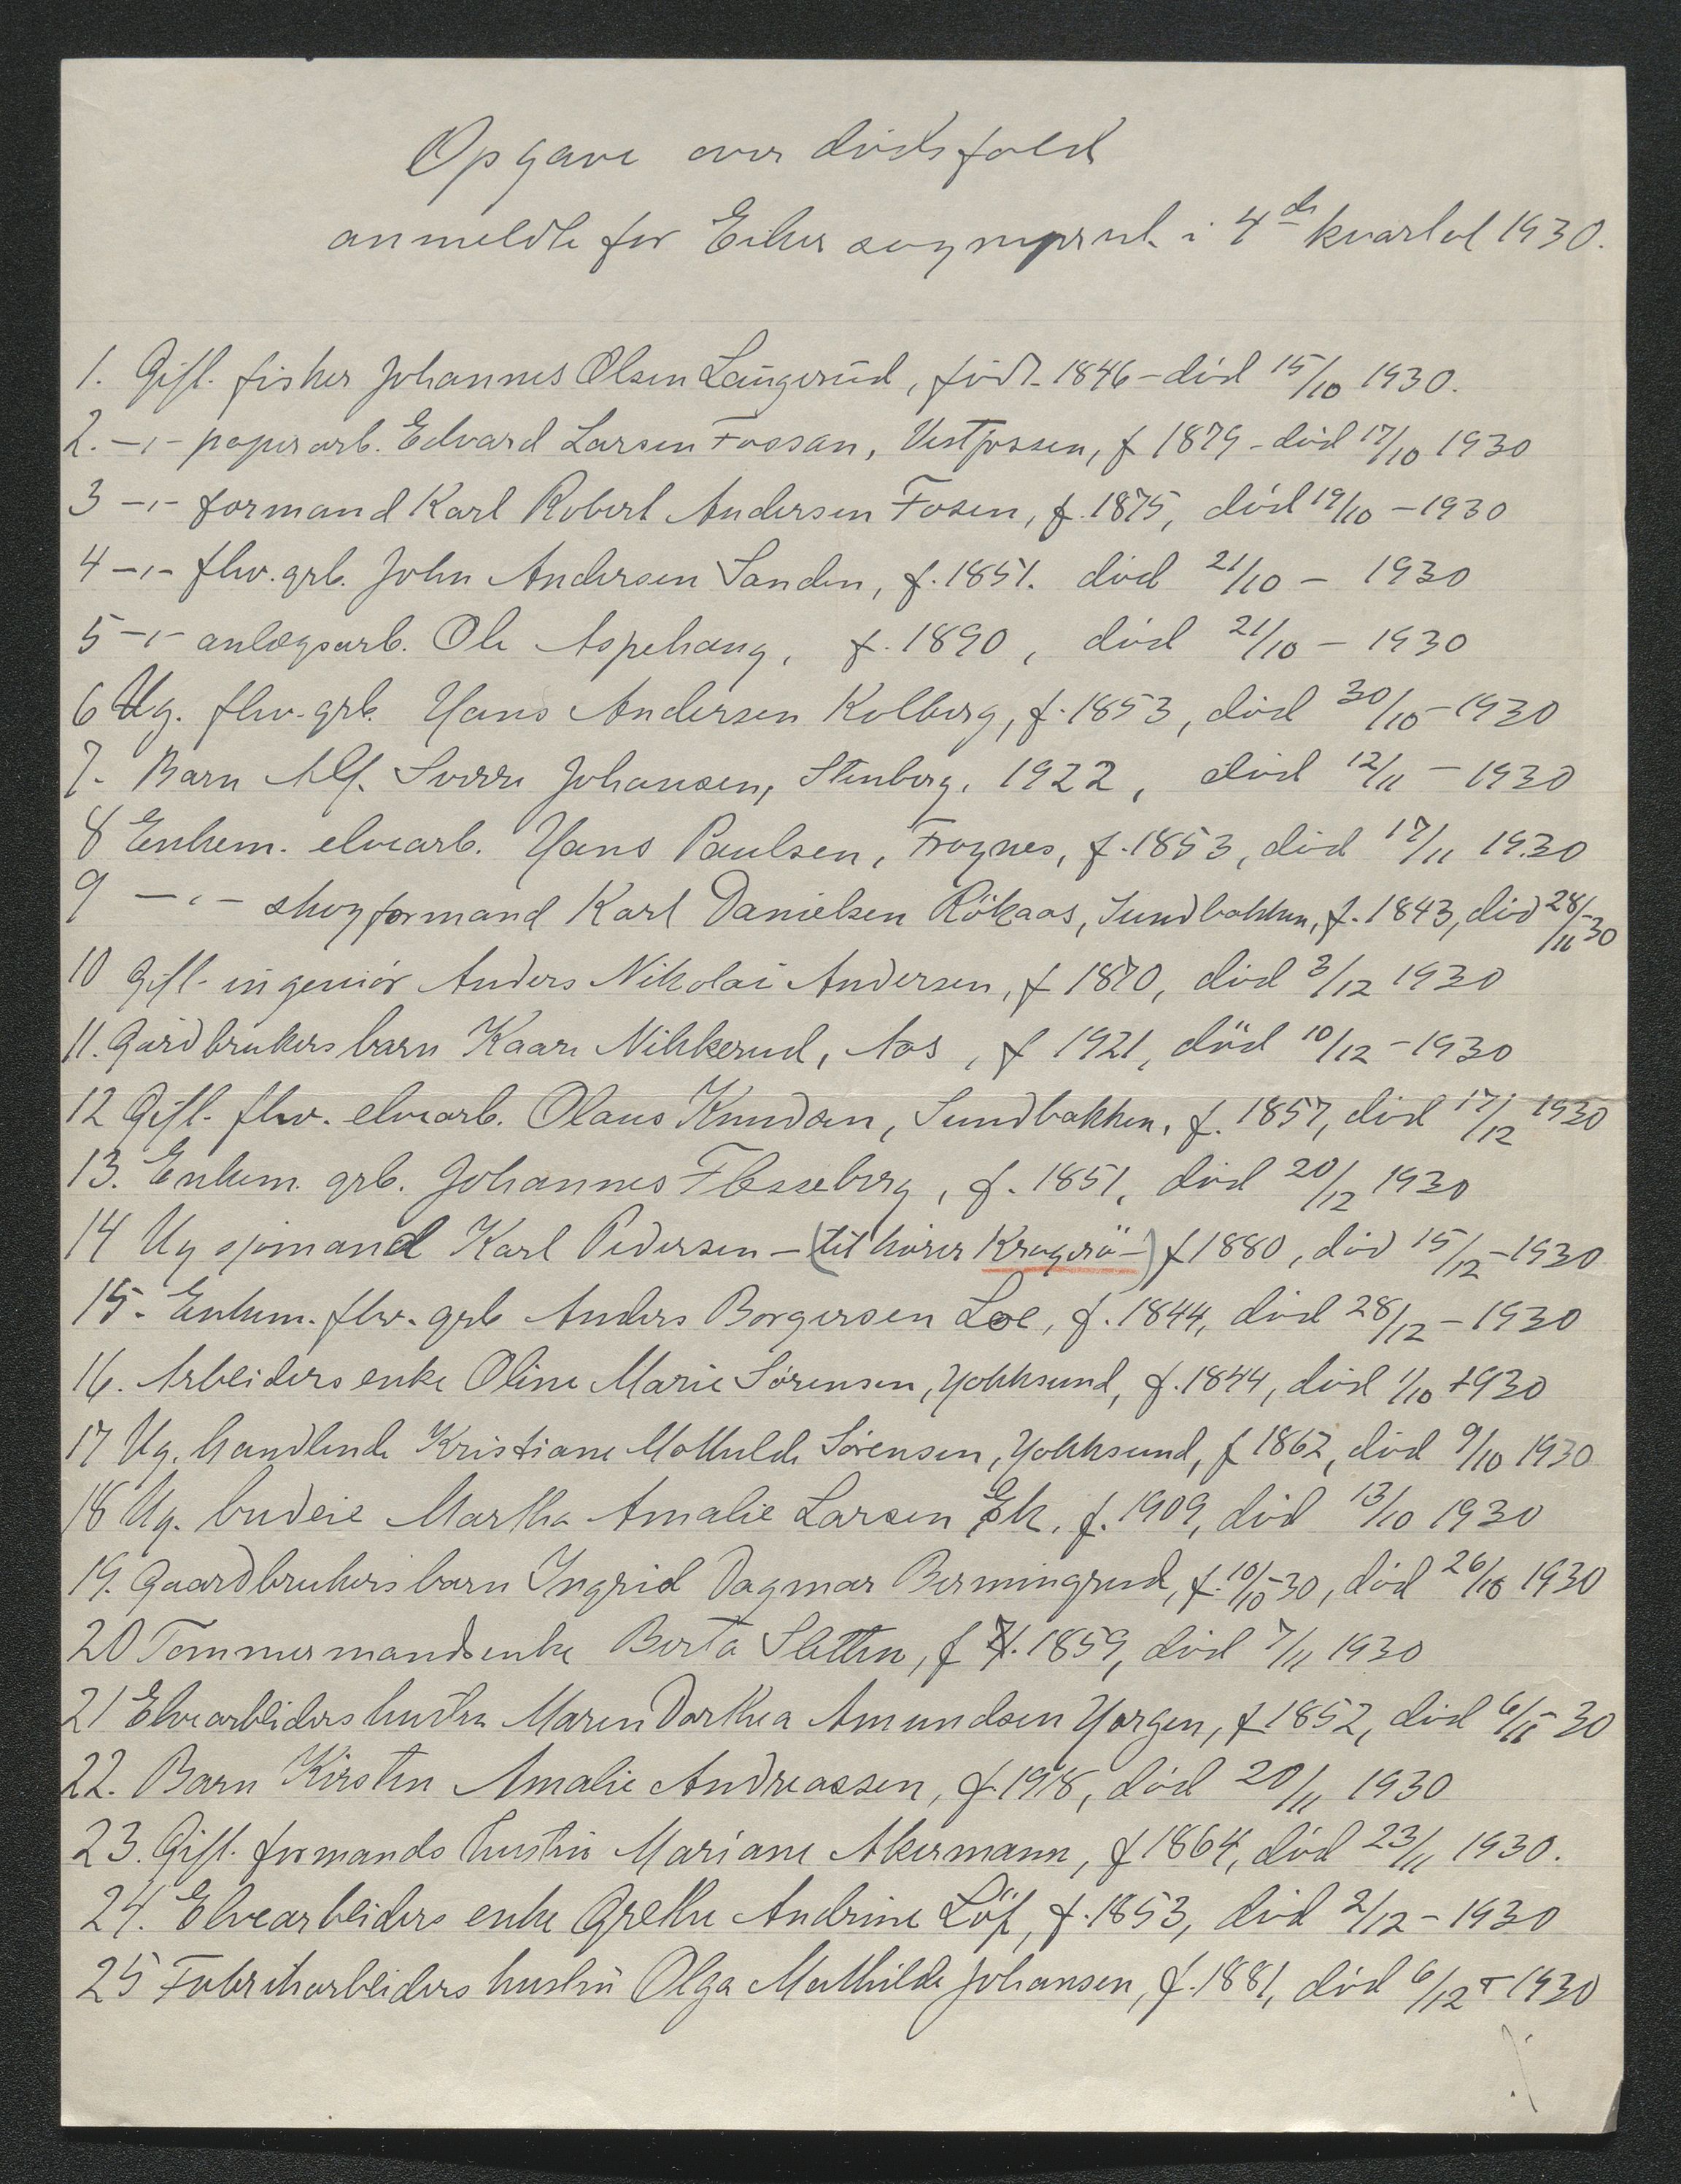 Opgave over dødsfald
anmeldte for Eiker sogneprest i 4de kvartal 1930.
1. Gift. fisker Johannes Olsen Langerud, født 1846 - død 15/10 1930.
2. -"- papirarb. Edvard Larsen Fossan, Vestfossen, f 1879 - død 17/10 1930
3 -"- formand Karl Robert Andersen Fosen, f. 1875, død 19/10 - 1930
4 -"- fhv. grb. John Andersen Sanden, f. 1851. død 21/10 - 1930
5 -"- anlægsarb. Ole Aspehaug, f. 1890, død 21/10 - 1930
6 Ug. fhv. grb. Hans Andersen Kolberg, f. 1853, død 30/10 - 1930
7. Barn Alf Sverre Johansen, Stenberg, 1922, død 12/11 - 1930
8 Enkem. elvearb. Hans Paulsen, Frognes, f. 1853, død 17/11 1930
9 -"- skogformand Karl Danielsen Rökaas, Sundbakken, f. 1843, død 28/11-30
10 Gift. ingeniør Anders Nikolai Andersen, f 1870, død 3/12 1930
11. Gårdbrukers barn Kaare Nikkerud, Aas, f 1921, död 10/12 - 1930
12 Gift. fhv. elvearb. Olaus Knudsen, Sundbakken, f. 1857, død 17/12 1930
13. Enkem. grb. Johannes Flesseberg, f. 1851, død 20/12 1930
14 Ug sjømand Karl Pedersen - (tilhører Kragerö -) f 1880, død 15/12 - 1930
15. Enkem. fhv. grb Anders Borgersen Loe, f. 1844, død 28/12 - 1930
16. Arbeiders enke Oline Marie Sørensen, Hokksund, f. 1844, død 1/10 1930
17 Ug. handlende Kristiane Mathilde Sørensen, Hokksund, f 1862, død 9/10 1930
18 Ug. budeie Martha Amalie Larsen Ek, f. 1909, død 13/10 1930
19. Gaardbrukers barn Ingrid Dagmar Bermingrud, f. 10/10-30, død 26/10 1930
20 Tømmermandsenke Berta Sletten, f. 1859, død 7/11 1930
21 Elvearbeiders hustru Maren Dorthea Amundsen Horgen, f 1852, død 6/11-30
22. Barn Kirsten Amalie Andreassen, f. 1918, død 20/11 1930
23. Gift. formands hustru Mariane Akermann, f 1864, død 23/11 1930.
24. Elvearbeiders enke Grethe Andrine Löf, f. 1853, død 2/12 - 1930
25 Fabrikarbeiders hustru Olga Mathilde Johansen, f. 1881, død 6/12 - 1930